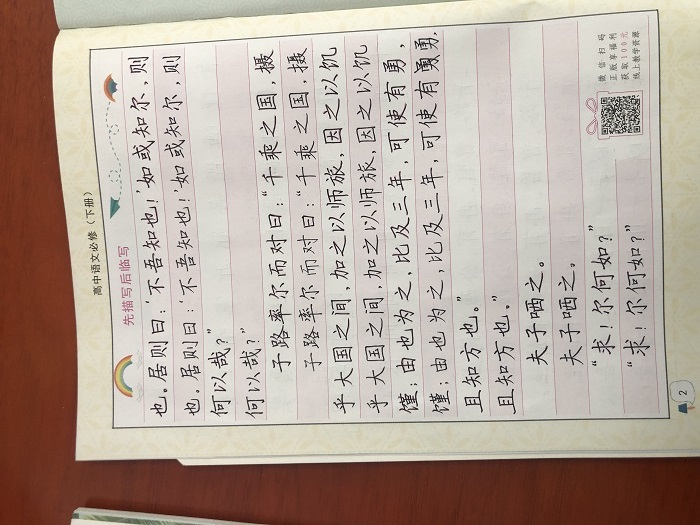 高中语文必修（下册）
先描写后临写
也。居则曰：‘不吾知也！’如或知尔，则
也。居则曰：‘不吾知也！’如或知尔，则
何以哉？”
何以哉？”
子路率尔而对曰：“千乘之国，摄
子路率尔而对曰：“千乘之国，摄
乎大国之间，加之以师旅，因之以饥
乎大国之间，加之以师旅，因之以饥
馑；由也为之，比及三年，可使有勇，
馑；由也为之，比及三年，可使有勇勇，
且知方也。”
且知方也。”
夫子哂之。
夫子哂之。
“求！尔何如？”
“求！尔何如？”
微信扫码
正版享福利
获取100元
线上教学资源
2